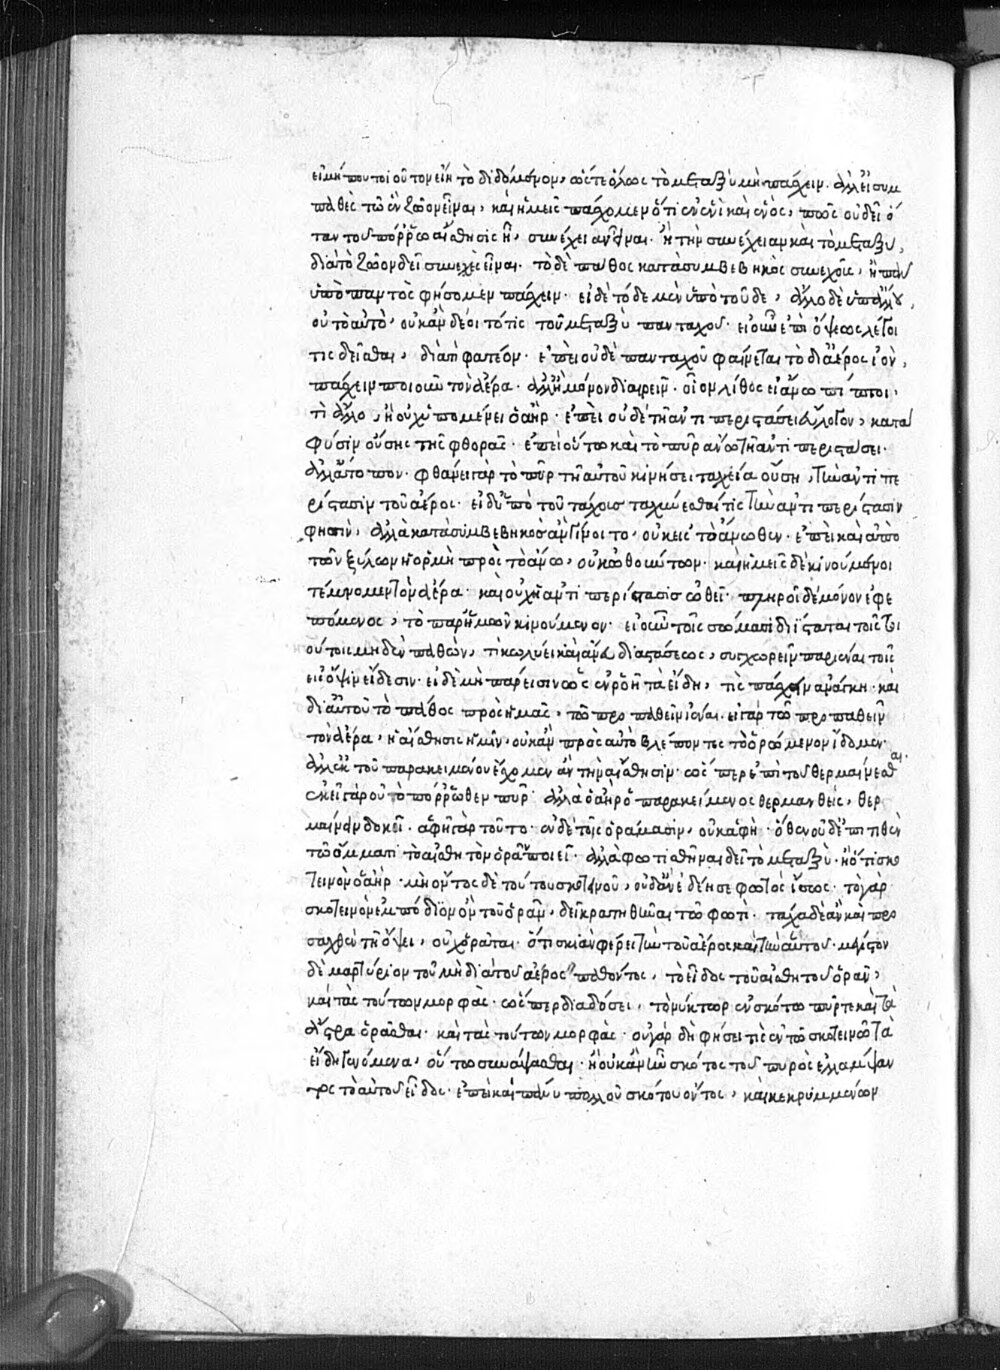 εἰ μή που τοιοῦτον εἴη τὸ διδόμενον, ὥστε ὅλως τὸ μεταξὺ μὴ πάσχειν. ἀλλ' εἰ συμ
παθὲς τῶ ἓν ζῶον εἶναι, καὶ ἡμεῖς πάσχομεν ὅτι ἐν ἑνὶ καὶ ἑνὸς, πῶς οὐ δεῖ ὅ
ταν τοῦ πόρρω αἴσθησις ἦ, συνέχειαν εἶναι. ἢ τὴν συνέχειαν καὶ τὸ μεταξὺ,
διὰ τὸ ζῶον δεῖ συνεχὲς εἶναι. τὸ δὲ πάθος κατὰ συμβεβηκὸς συνεχοῦς, ἢ πᾶν
ὑπὸ παντὸς φήσομεν πάσχειν. εἰ δὲ τόδε μὲν ὑπὸ τοῦδε, ἄλλο δὲ ὑπ' ἄλλου,
οὐ τὸ αὐτὸ, οὐκ ἂν δέοιτό τις τοῦ μεταξὺ πανταχοῦ. εἰ οὖν ἐπὶ ὄψεως λέγοι
τις δεῖσθαι, διὰ τί φατέον. ἐπεὶ οὐδὲ πανταχοῦ φαίνεται τὸ δι' ἀέρος ἰὸν,
πάσχειν ποιοῦν τὸν ἀέρα. ἀλλ' ἢ μόνον διαιρεῖν. οἷον λίθος εἰ ἄνω πίπτοι,
τί ἄλλο, ἢ οὐχ ὑπομένει ὁ ἀήρ. ἐπεὶ οὐδὲ τῆ ἀντιπεριστάσει εὔλογον, κατὰ
φύσιν οὔσης τῆς φθορᾶς. ἐπεὶ οὕτω καὶ τὸ πῦρ ἄνω τῆ ἀντιπεριστάσει.
ἀλλ' ἄτοπον. φθάνει γὰρ τὸ πῦρ τῆ αὐτοῦ κινήσει ταχεία οὔση, τὴν ἀντιπε
ρίστασιν τοῦ ἀέρος. εἰ δ' ὑπὸ τοῦ τάχους ταχύνεσθαί τις τὴν ἀντιπερίστασιν
φησιν, ἀλλὰ κατὰ συμβεβηκὸς ἂν γίνοιτο, οὐκ εἰς τὸ ἄνωθεν. ἐπεὶ καὶ ἀπὸ
τῶν ξύλων ἡ ὁρμὴ πρὸς τὸ ἄνω, οὐκ ὠθούντων. καὶ ἡμεῖς δὲ κινούμενοι
τέμνομεν τὸν ἀέρα. καὶ οὐχ ἡ ἀντιπερίστασις ὠθεῖ. πληροῖ δὲ μόνον ἐφε
πόμενος, τὸ παρ' ἡμῶν κινούμενον. εἰ οὖν τοῖς σώμασι διΐσταται τοῖς τοι
ούτοις μηδὲν παθὼν, τί κωλύει καὶ ἄνευ διαστάσεως, συγχωρεῖν παριέναι τοῖς
εἰς ὄψιν εἴδεσιν. εἰ δὲ μὴ πάρεισιν ὡς ἐν ῥοῆ τὰ εἴδη, τίς πάσχειν ἀνάγκη. καὶ
δι' αὐτοῦ τὸ πάθος πρὸς ἡμᾶς, τῶ προπαθεῖν ἰέναι. εἰ γὰρ τῶ προπαθεῖν
τὸν ἀέρα, ἡ αἴσθησις ἡμῖν, οὐκ ἂν πρὸς αὐτὸ βλέποντες τὸ ὁρώμενον ἴδομεν.
ἀλλ' ἐκ τοῦ παρακειμένου ἔχομεν ἂν τὴν αἴσθησιν. ὥσπερ ἐπὶ τοῦ θερμαίνεσθαι.
ἐκεῖ γὰρ οὐ τὸ πόρρωθεν πῦρ. ἀλλὰ ὁ ἀὴρ ὁ παρακείμενος θερμανθεὶς, θερ
μαίνειν δοκεῖ. ἁφῆ γὰρ τοῦτο. ἐν δὲ τοῖς ὁράμασιν, οὐκ ἁφή. ὅθεν οὐδ' ἐπιτιθὲν
τῶ ὄμματι τὸ αἰσθητὸν ὁρᾶν ποιεῖ. ἀλλὰ φωτισθῆναι δεῖ τὸ μεταξὺ. ἢ ὅτι σκο
τεινὸν ὁ ἀήρ. μὴ ὄντος δὲ τούτου σκοτεινοῦ, οὐδ' ἂν ἐδέησε φωτὸς ἴσως. τὸ γὰρ
σκοτεινὸν ἐμπόδιον ὂν τοῦ ὁρᾶν, δεῖ κρατηθῆναι τῶ φωτί. τάχα δὲ ἂν καὶ προ
σαχθὲν τῆ ὄψει, οὐχ ὁρᾶται. ὅτι σκιὰν φέρει τὴν τοῦ ἀέρος καὶ τὴν αὐτοῦ. μέγιστον
δὲ μαρτύριον τοῦ μὴ διὰ τοῦ ἀέρος παθόντος, τὸ εἶδος τοῦ αἰσθητοῦ ὁρᾶν,
καὶ τὰς τούτων μορφὰς. ὥσπερ διαδόσει, τὸ νύκτωρ ἐν σκότω πῦρ τε καὶ τὰ
ἄστρα ὁρᾶσθαι. καὶ τὰς τούτων μορφάς. οὐ γὰρ δὴ φήσει τις ἐν τῶ σκοτεινῶ τὰ
εἴδη γενόμενα, οὕτω συνάψασθαι. ἢ οὐκ ἂν ἦν σκότος τοῦ πυρὸς ἐλλάμψαν
τος τὸ αὐτοῦ εἶδος. ἐπεὶ καὶ πάνυ πολλοῦ σκότου ὄντος, καὶ κεκρυμμένων